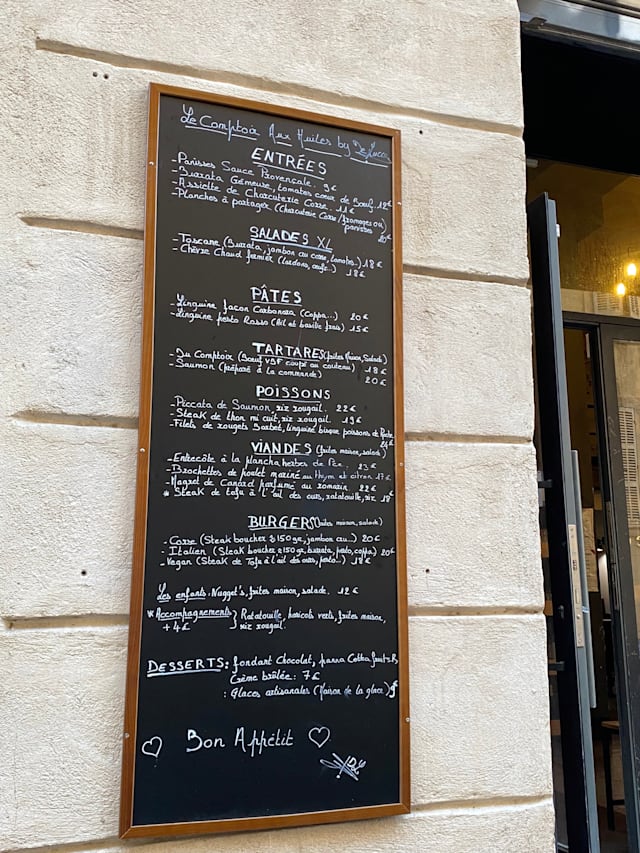 Le Comptoir Aux Huiles by De Lucca
ENTRÉES
- Panisses Sauce Provençale. 9€
- Burrata Crémeuse, tomates cœur de Bœuf. 19€
- Assiette de Charcuterie Corse. 11€
- Planches à partager (Charcuterie Corse/fromages ou)
panisses 20€
SALADES XL
- Toscane (Burrata, jambon cru corse, tomates..) 18€
- Chèvre Chaud fermier (lardons, œufs..) 18€
PÂTES
- Linguine façon Carbonara (Coppa...) 20€
- Linguine pesto Rosso (Ail et basilic frais) 15€
TARTARES (frites Maison, Salade)
- Du Comptoir (Boeuf VBF coupé au couteau) 18€
- Saumon (préparé à la commande) 20€
POISSONS
- Piccata de Saumon, riz rougail. 22€
- Steak de thon mi cuit, riz rougail. 19€
- Filets de rougets Barbet, linguine bisque poissons de Roche
24€
VIANDES (frites maison, salade)
- Entrecôte à la plancha herbes de Pce. 23€
- Brochettes de poulet mariné au thym et citron 17€
- Magret de Canard parfumé au romarin 22€
* Steak de tofu à l'ail des ours, ratatouille, riz 18€
BURGERS (frites maison, salade)
- Corse (Steak boucher 150gr, jambon cru...) 20€
- Italien (Steak boucher 150gr, burrata, pesto, coppa) 20€
- Vegan (Steak de Tofu à l'ail des ours, pesto..) 18€
Les enfants: Nugget's, frites maison, salade. 12€
* Accompagnements } Ratatouille, haricots verts, frites maison,
+ 4€ riz rougail.
DESSERTS: fondant Chocolat, panna Cotta fruits
Crème brûlée: 7€
: Glaces artisanales (Maison de la glace)
Bon Appétit